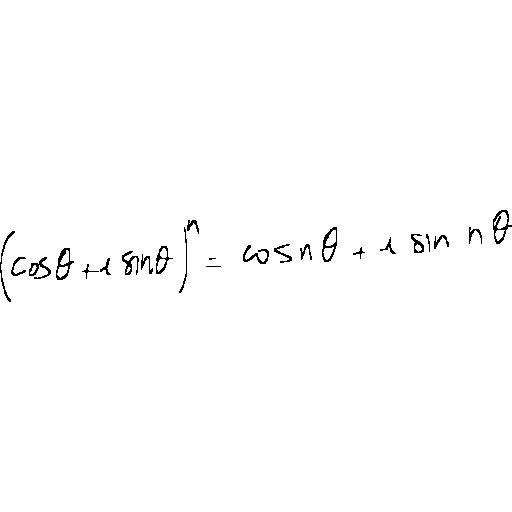 (cosθ + i sinθ)^n = cos nθ + i sin nθ